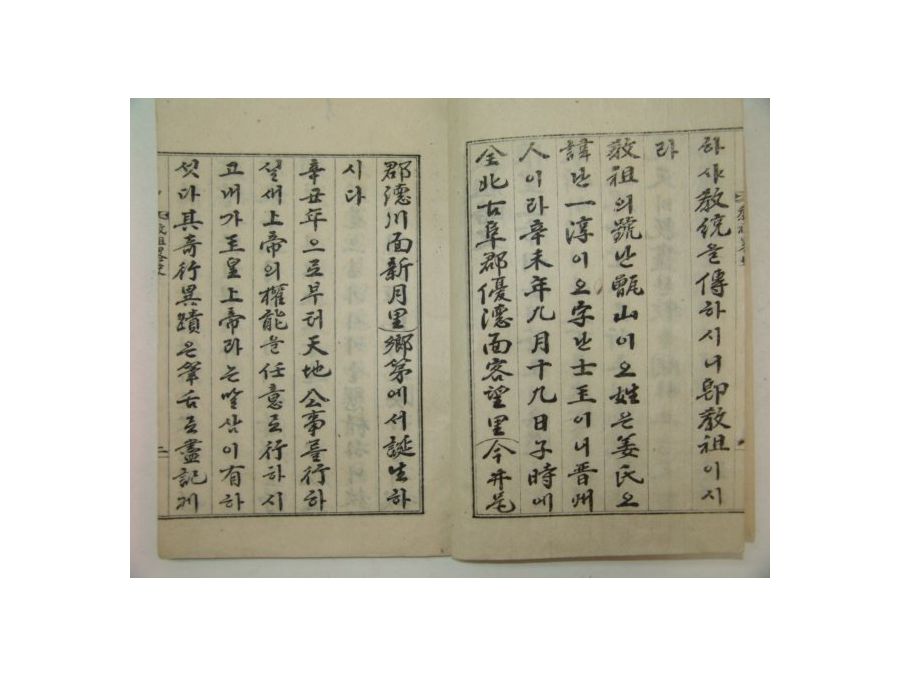 하샤敎統을傳하시니卽敎祖이시
라
敎祖의號난甑山이오姓은姜氏오
諱난一淳이오字난士玉이니晋州
人이라辛未年九月十九日子時에
全北古阜郡優德面客望里(今井邑
郡德川面新月里)鄕第에서誕生하
시다
辛丑年으로부터天地公事를行하
실새上帝의權能을任意로行하시
고내가玉皇上帝라는말삼이有하
섯다其奇行異蹟은筆舌로盡記게